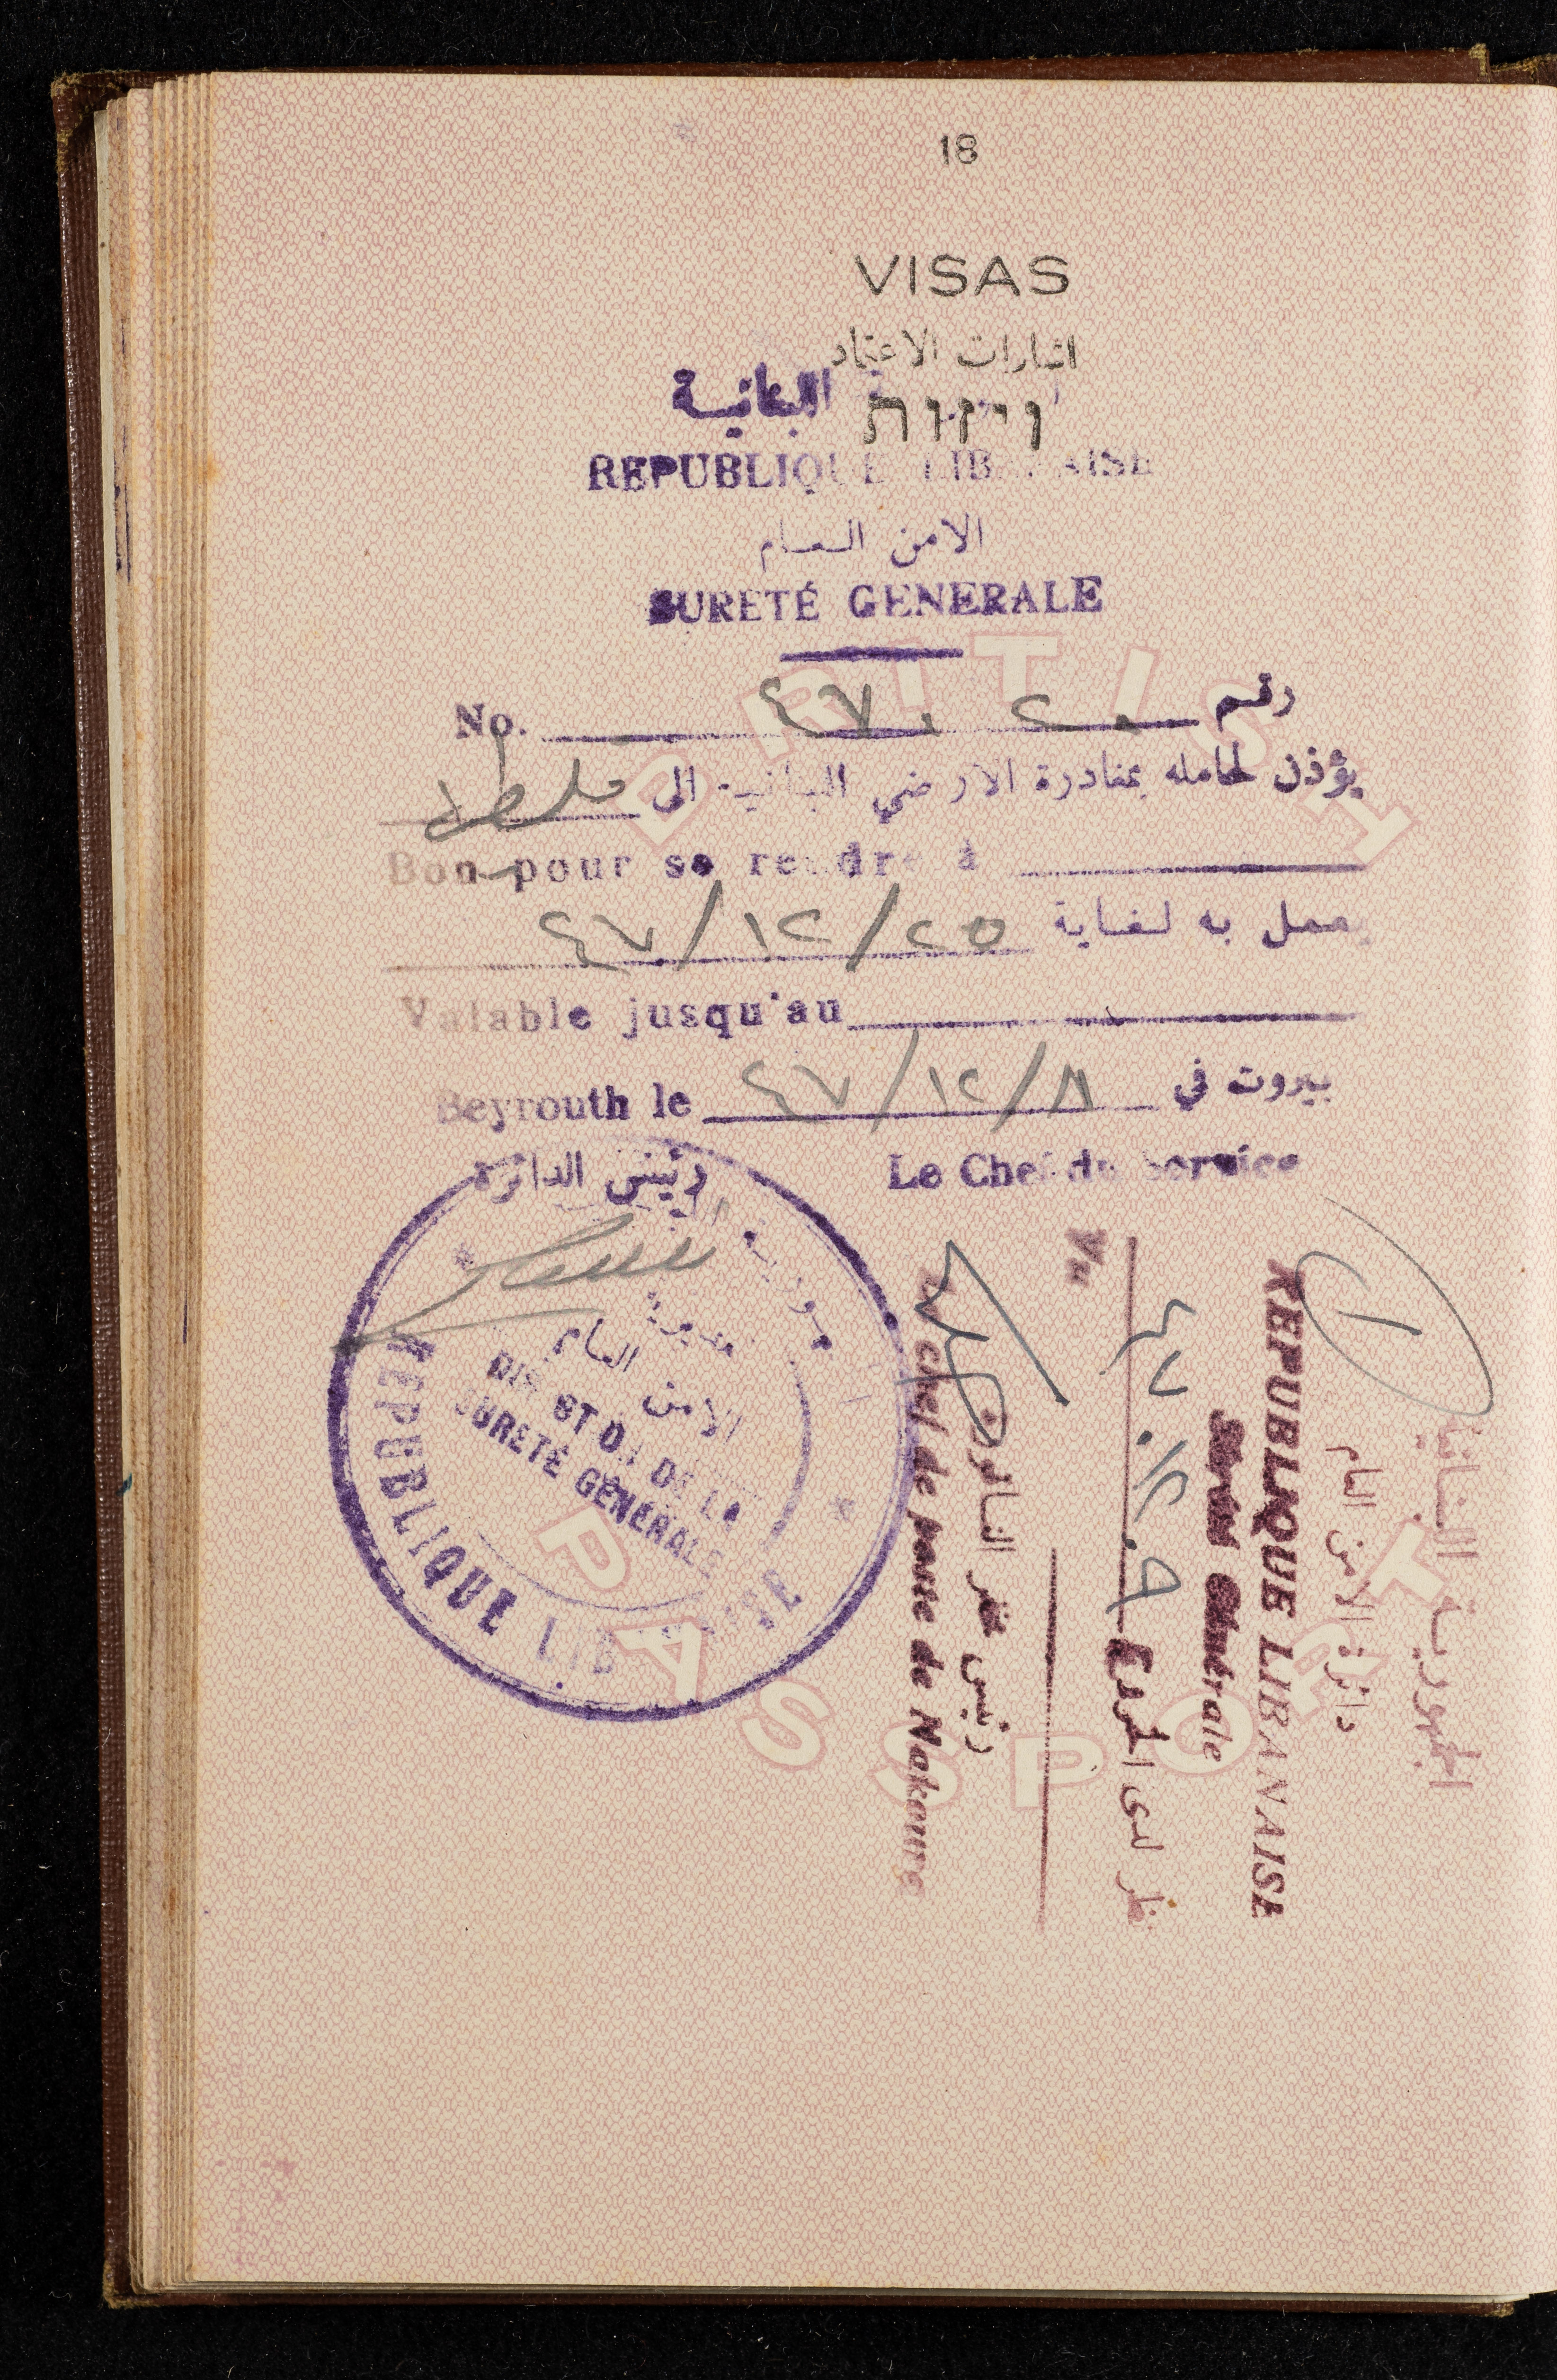 18
VISAS
اشارات الاعتماد
ויזות
اللبنانية
REPUBLIQUE LIBANAISE
الامن العام
SURETÉ GENERALE
No. ٤٧٠٢٠ رقم
يؤذن لحامله بمغادرة الارضي اللبنانية الى فلسطين
Bon pour se rendre à
يعمل به لغاية ٤٧/١٢/٢٥
Valable jusqu'au
Beyrouth le ٤٧/١٢/٨ بيروت في
رئيس الدائرة Le Chef du Service
مديرية
الامن العام
SURETÉ GÉNÉRALE
REPUBLIQUE LIBANAISE
الجمهورية اللبنانية
دائرة الامن العام
REPUBLIQUE LIBANAISE
Sûreté Générale
نظر لدى الخروج ٩.١٢.٤٧
Vu
رئيس مخفر الناقورة
Le chef de poste de Nakoura
BRITISH
PASSPORT